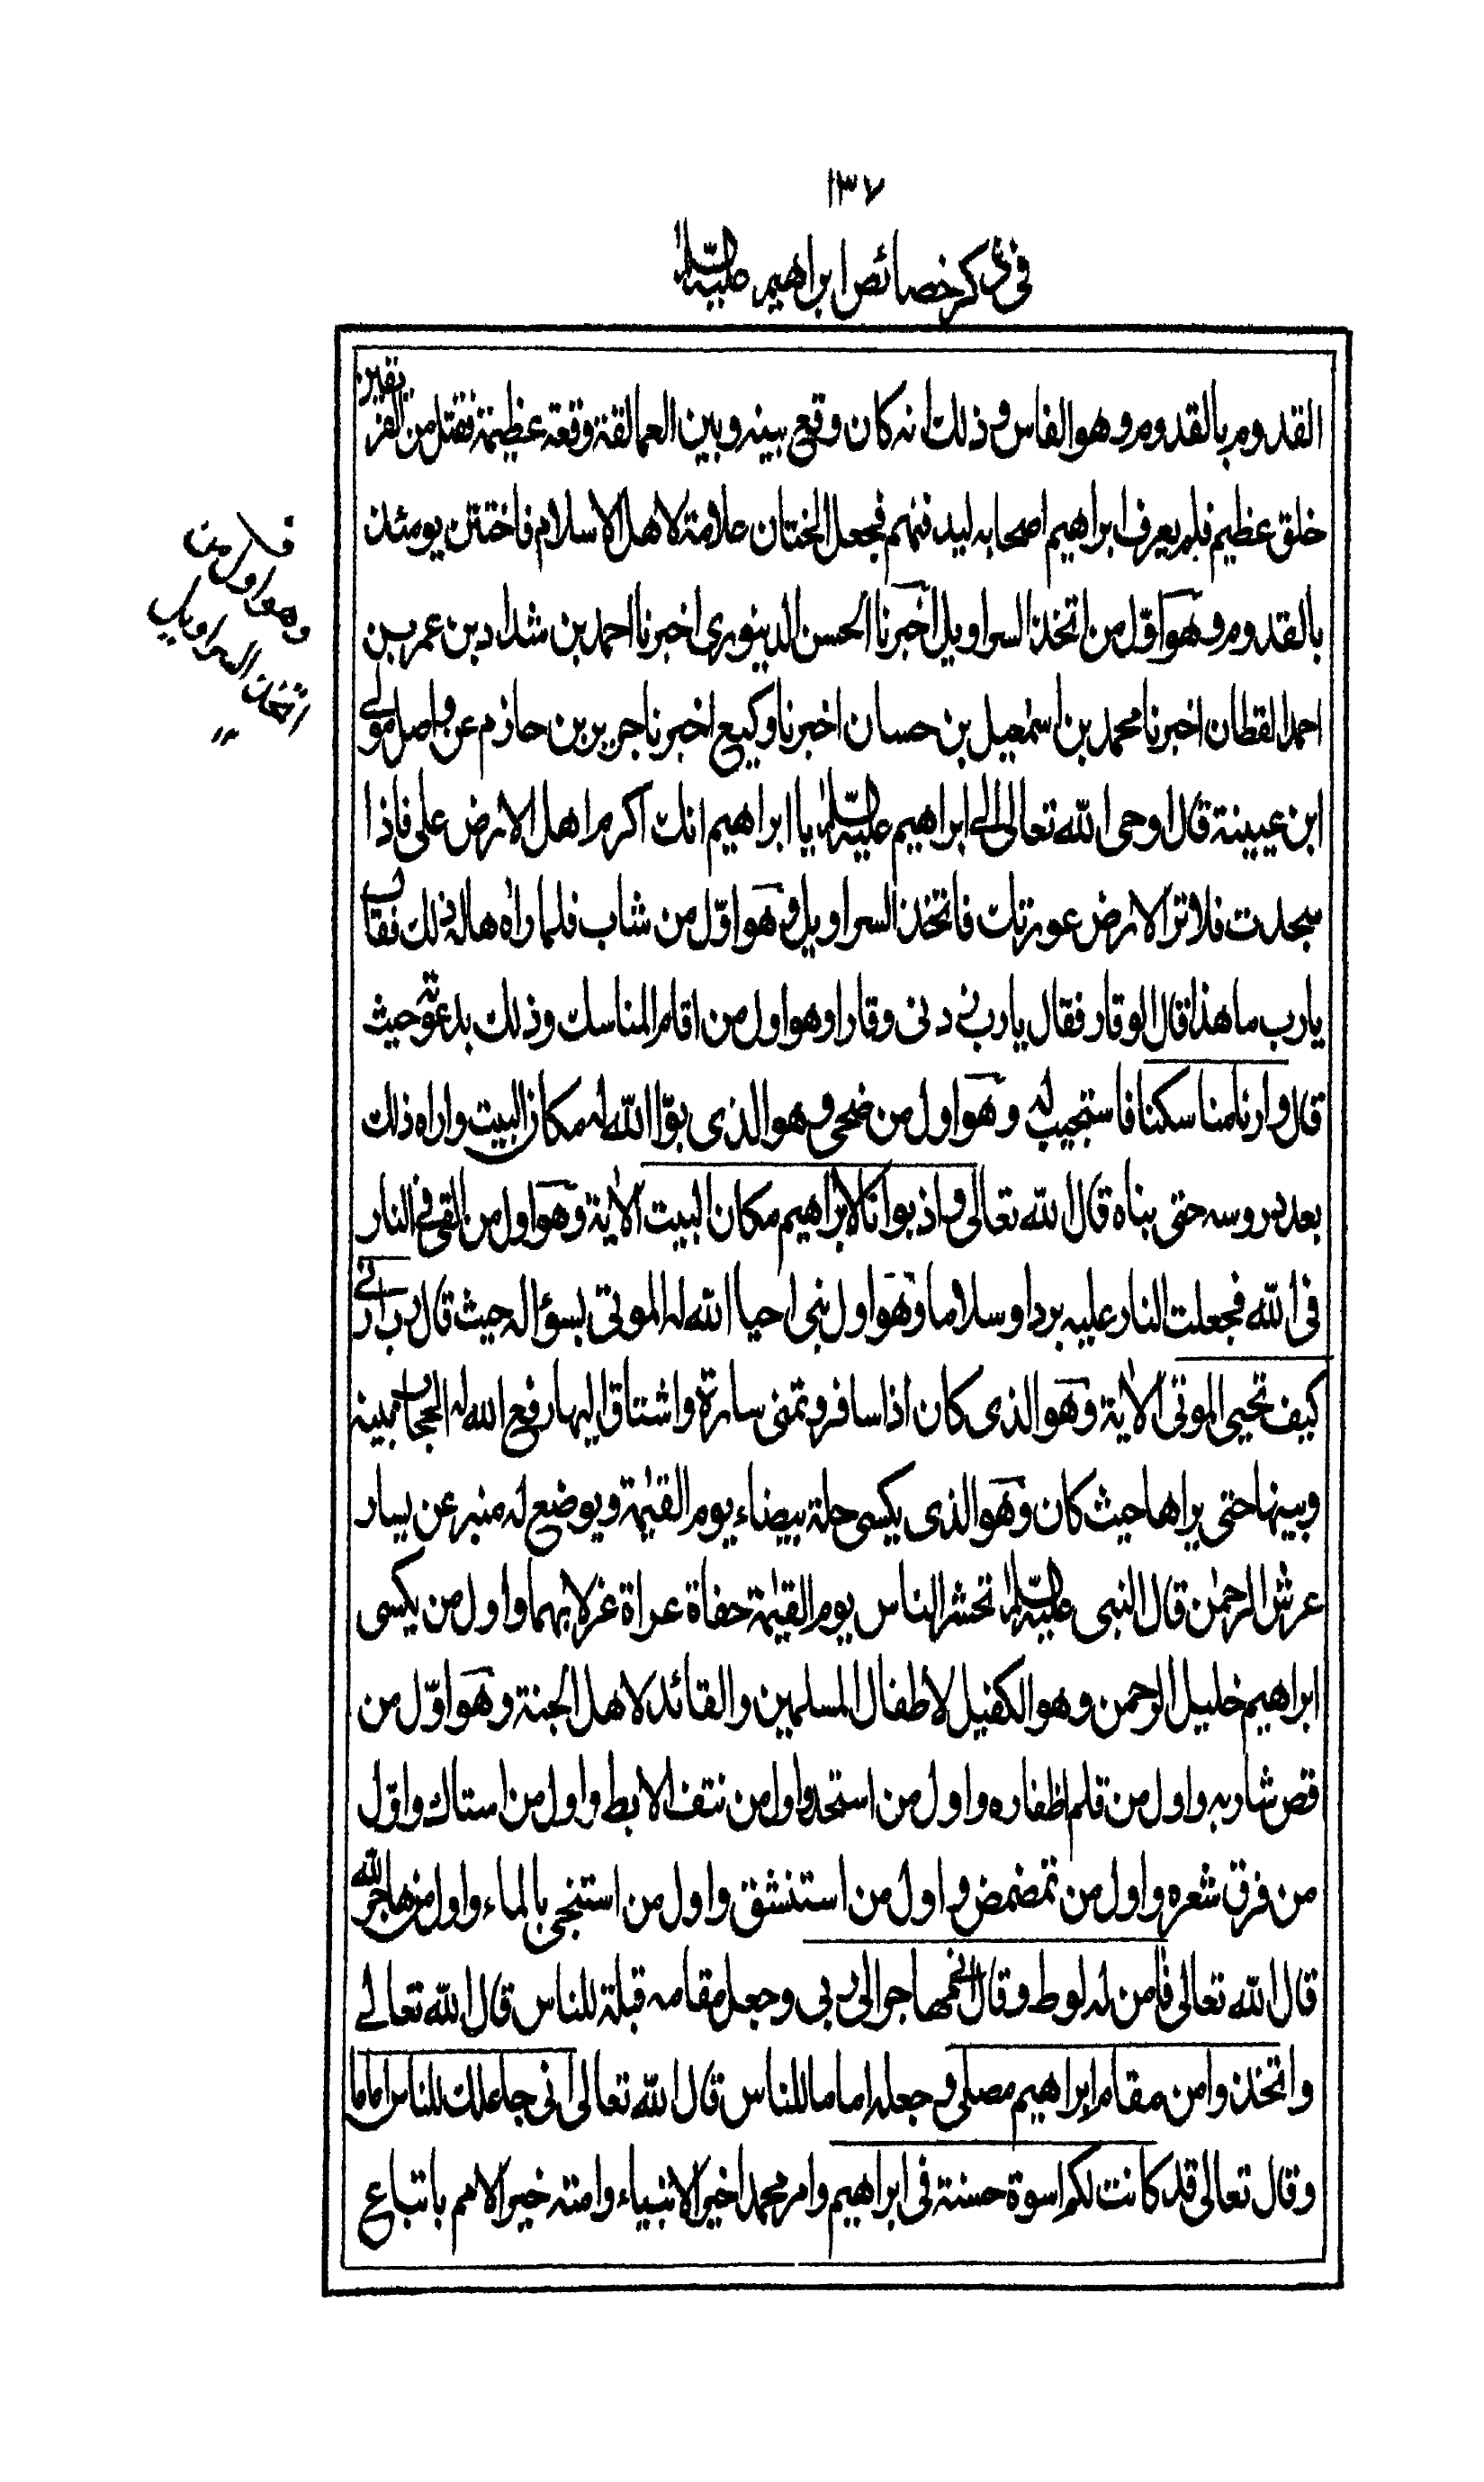 ١٣٧
فى ذكر خصائص ابراهيم عليه السلام
القدوم بالقدوم وهو الفاس وذلك انه كان وقع بينه وبين العمالقة وقعة عظيمة فقتل من الفريقين
خلق عظيم فلم يعرف ابراهيم اصحابه ليدفنهم فجعل الختان علامة لاهل الاسلام فاختتن يومئذ
بالقدوم وهو اول من اتخذ السراويل اخبرنا الحسن الدينورى اخبرنا احمد بن شداد بن عمر بن
احمد القطان اخبرنا محمد بن اسمعيل بن حسان اخبرنا وكيع اخبرنا جرير بن حازم عن واصل مولى
ابن عيينة قال اوحى الله تعالى الى ابراهيم عليه السلام يا ابراهيم انك اكرم اهل الارض على فاذا
سجدت فلا تر الارض عورتك فاتخذ السراويل وهو اوّل من شاب فلما راه هاله ذلك فقال
يارب ما هذا قال الوقار فقال يارب زدنى وقارا وهو اول من اقام المناسك وذلك بدعوته حيث
قال وارنا مناسكنا فاستجيب له وهو اول من ضحى وهو الذى بوّا الله له مكان البيت واراه ذلك
بعد دروسه حتى بناه قال الله تعالى واذ بوانا لابراهيم مكان البيت الاية وهو اول من القى فى النار
فى الله فجعلت النار عليه بردا وسلاما وهو اول نبى احيا الله له الموتى بسؤاله حيث قال رب ارنى
كيف تحيى الموتى الاية وهو الذى كان اذا سافر وتمنى سارة واشتاق ليها رفع الله له الحجاب بينه
وبينها حتى يراها حيث كان وهو الذى يكسى حلة بيضاء يوم القيمة ويوضع له منبر عن يسار
عرش الرحمن قال النبى عليه السلام تحشر الناس يوم القيمة حفاة عراة غرلا بهما واول من يكسى
ابراهيم خليل الرحمن وهو الكفيل لاطفال المسلمين والقائد لاهل الجنة وهو اوّل من
قص شاربه واول من قلم اظفاره واول من استحد واول من نتف الابط واول من استاك واوّل
من فرق شعره واول من تمضمض واول من استنشق واول من استنجى بالماء واول من هاجر لله
قال الله تعالى فامن له لوط وقال انى مهاجر الى ربى وجعل مقامه قبلة للناس قال الله تعالى
واتخذوا من مقام ابراهيم مصلى وجعله اماما للناس قال الله تعالى انى جاعلك للناس اماما
وقال تعالى قد كانت لكم اسوة حسنة فى ابراهيم وامر محمدا خير الانبياء وامته خير الامم باتباع
وهو اول من
اتخذ السراويل
١٢